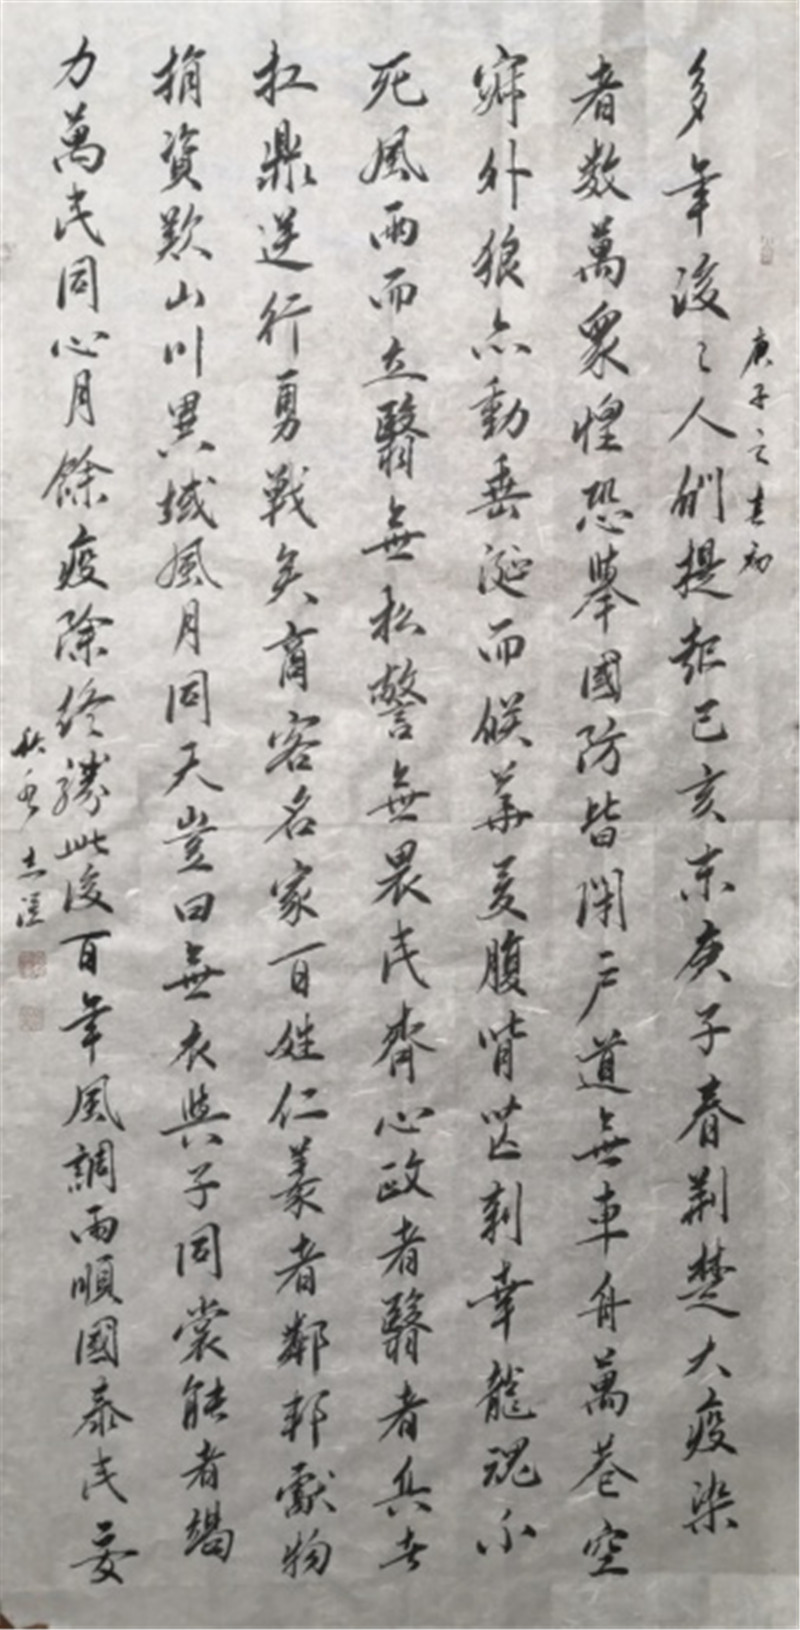 多年後〻人們提起己亥末庚子春荆楚大疫染
者数萬衆惶恐舉國防皆閉户道無車舟萬巷空
寂外狼亦動垂涎而候華夏腹背芒刺幸龍魂不
死風雨而立醫無私警無畏民齊心政者醫者兵者
扛鼎逆行勇戰矣商客名家百姓仁義者鄰邦獻物
捐資歎山川異域風月同天豈曰無衣與子同裳能者竭
力萬民同心月餘疫除終勝此後百年風調雨順國泰民安
庚子之春初